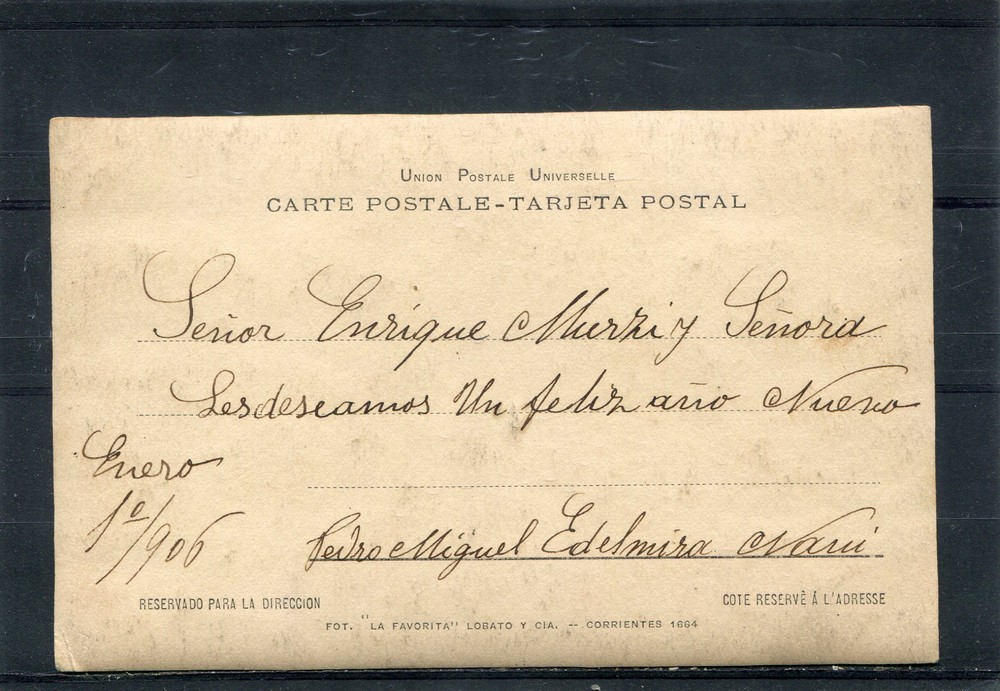 UNION POSTALE UNIVERSELLE
CARTE POSTALE-TARJETA POSTAL
Señor Enrique Murzi y Señora
Les deseamos Un feliz año Nuevo
Enero
1º/906
Pedro Miguel Edelmira Nani
RESERVADO PARA LA DIRECCION
COTE RESERVÉ Á L'ADRESSE
FOT. "LA FAVORITA" LOBATO Y CIA. -- CORRIENTES 1664